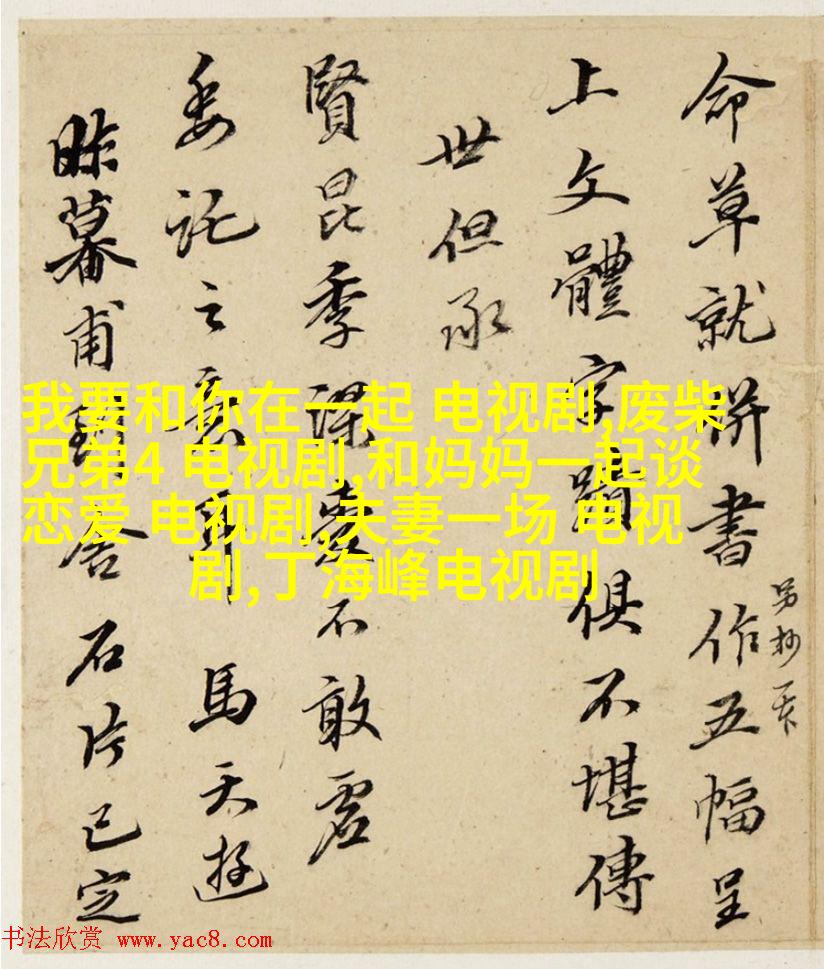 命草就併書作五幅呈
另抄一
上文體字蹟俱不堪傳
世但承
賢昆季深愛不敢虛
委託之意耳 馬天遊
昨暮甫到舍石片已定
我要和你在一起 电视剧,废柴
兄弟4 电视剧,和妈妈一起谈
恋爱 电视剧,夫妻一场 电视
剧,丁海峰电视剧
书法欣赏 www.yac8.com